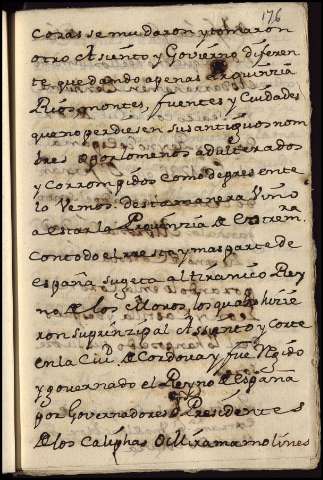 176
Cosas se mudaron y tomaron
otro Asiento y Govierno diferen
te quedando apenas Provinzia
Rios montes, fuentes y Ciudades
que no perdiesen sus antiguos nom
bres o por lo menos adulterados
y Corrompidos Como depresente
lo Vemos. Desta manera Vino
a estar la Provinzia de Extrem.ra
Con todo el rresto y mas parte de
españa sugeta al tiranico Rey
no de los Moros, los quales hizie
ron su prinzipal Assiento y Corte
en la Ciud. de Cordova y fue Regido
y governado el Reyno de España
por Governadores o Presidentes
de los Caliphas o Miramamolines